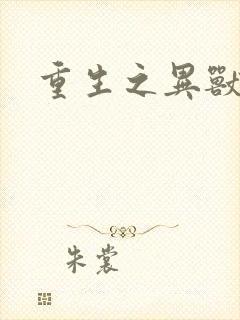 重生之異獸
朱裳